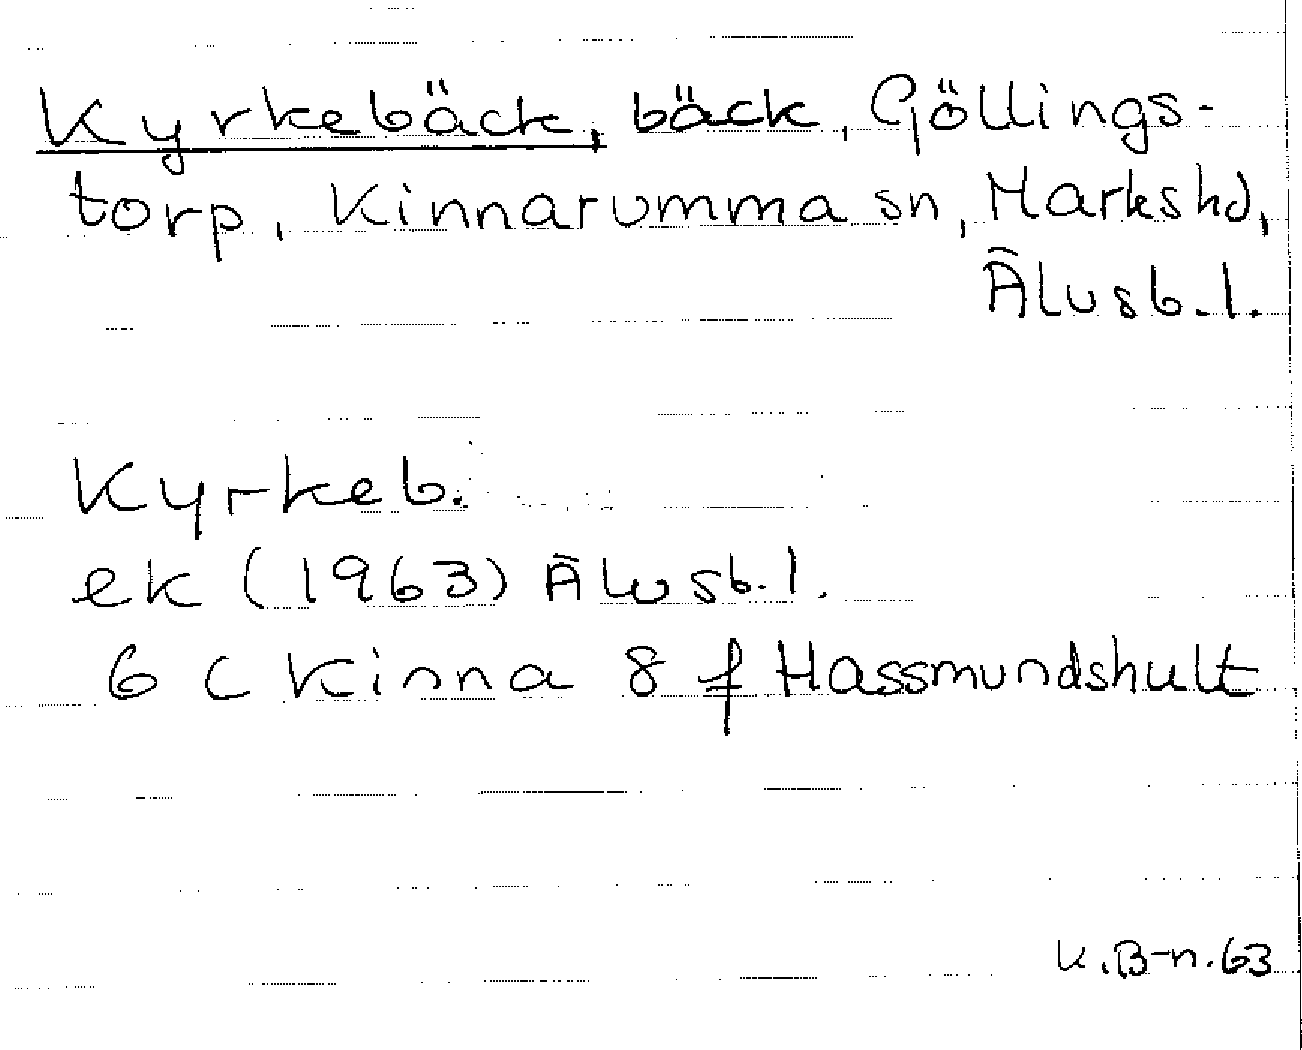 Kyrkebäck, bäck, Göllings-
torp, Kinnarumma sn, Marks hd,
Älvsb. l.
Kyrkeb.
ek (1963) Älvsb. l.
6 C Kinna 8 f Hassmundshult
K. B-n. 63